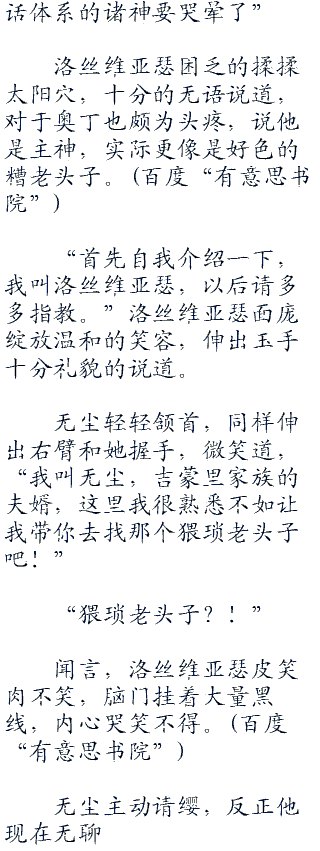 话体系的诸神要哭晕了”
洛丝维亚瑟困乏的揉揉
太阳穴，十分的无语说道，
对于奥丁也颇为头疼，说他
是主神，实际更像是好色的
糟老头子。(百度“有意思书
院”)
“首先自我介绍一下，
我叫洛丝维亚瑟，以后请多
多指教。”洛丝维亚瑟面庞
绽放温和的笑容，伸出玉手
十分礼貌的说道。
无尘轻轻颔首，同样伸
出右臂和她握手，微笑道，
“我叫无尘，吉蒙里家族的
夫婿，这里我很熟悉不如让
我带你去找那个猥琐老头子
吧！”
“猥琐老头子？！”
闻言，洛丝维亚瑟皮笑
肉不笑，脑门挂着大量黑
线，内心哭笑不得。(百度
“有意思书院”)
无尘主动请缨，反正他
现在无聊